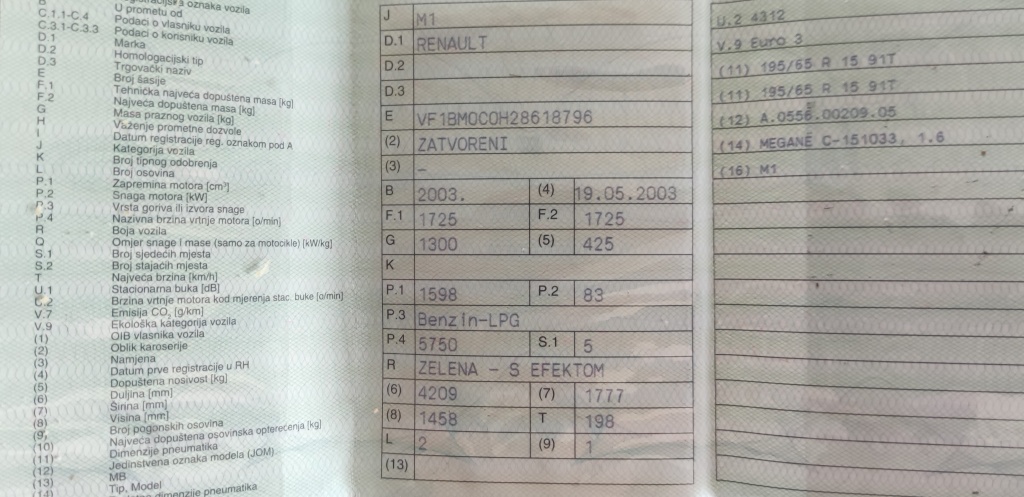 oznaka vozila
C.1.1-C.4 U prometu od
C.3.1-C.3.3 Podaci o vlasniku vozila
D.1 Podaci o korisniku vozila
D.2 Marka
D.3 Homologacijski tip
E Trgovački naziv
F.1 Broj šasije
F.2 Tehnička najveća dopuštena masa [kg]
G Najveća dopuštena masa [kg]
H Masa praznog vozila [kg]
I Važenje prometne dozvole
J Datum registracije reg. oznakom pod A
K Kategorija vozila
L Broj tipnog odobrenja
P.1 Broj osovina
P.2 Zapremina motora [cm³]
P.3 Snaga motora [kW]
P.4 Vrsta goriva ili izvora snage
R Nazivna brzina vrtnje motora [o/min]
Q Boja vozila
S.1 Omjer snage i mase (samo za motocikle) [kW/kg]
S.2 Broj sjedećih mjesta
T Broj stajaćih mjesta
U.1 Najveća brzina [km/h]
U.2 Stacionarna buka [dB]
V.7 Brzina vrtnje motora kod mjerenja stac. buke [o/min]
V.9 Emisija CO₂ [g/km]
(1) Ekološka kategorija vozila
(2) OIB vlasnika vozila
(3) Oblik karoserije
(4) Namjena
(5) Datum prve registracije u RH
(6) Dopuštena nosivost [kg]
(7) Duljina [mm]
(8) Širina [mm]
(9) Visina [mm]
(10) Broj pogonskih osovina
(11) Najveća dopuštena osovinska opterećenja [kg]
(12) Dimenzije pneumatika
(13) Jedinstvena oznaka modela (JOM)
(14) MB
Tip, Model
dimenzije pneumatika
J M1
D.1 RENAULT
D.2
D.3
E VF1BM0C0H28618796
(2) ZATVORENI
(3) –
B 2003. (4) 19.05.2003
F.1 1725 F.2 1725
G 1300 (5) 425
K
P.1 1598 P.2 83
P.3 Benzin-LPG
P.4 5750 S.1 5
R ZELENA - S EFEKTOM
(6) 4209 (7) 1777
(8) 1458 T 198
L 2 (9) 1
(13)
U.2 4312
V.9 Euro 3
(11) 195/65 R 15 91T
(11) 195/65 R 15 91T
(12) A.0556.00209.05
(14) MEGANE C-151033, 1.6
(16) M1